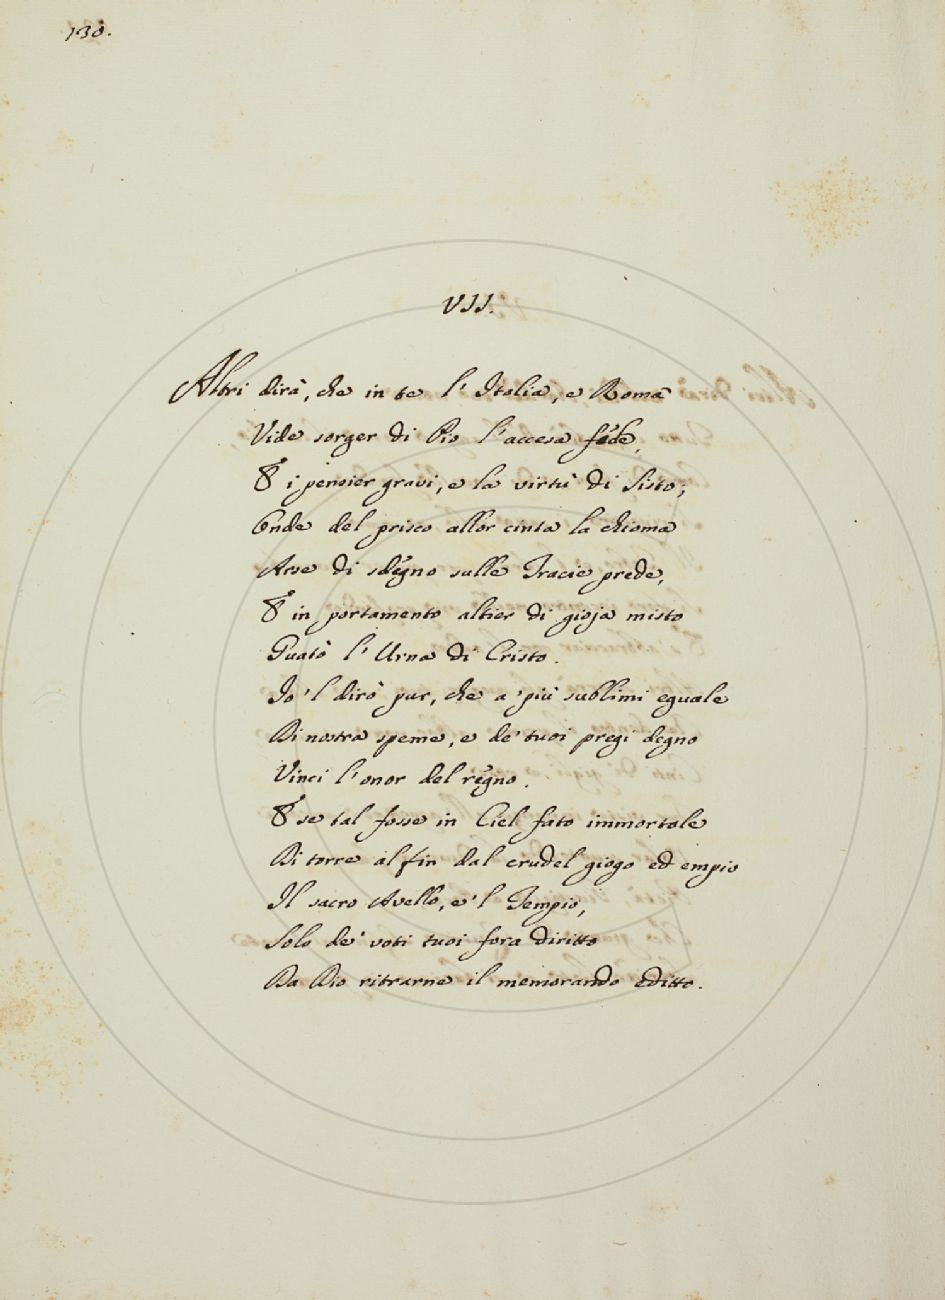 130.
VII.
Altri dirà, che in te l'Italia, e Roma
Vide sorger di Pio l'accesa fede,
E i pensier gravi, e la virtù di Sisto;
Onde del prisco allor cinta la chioma
Arse di sdegno sulle Tracie prede,
E in portamento altier di gioja misto
Guatò l'Urna di Cristo.
Io 'l dirò pur, che a' più sublimi eguale
Di nostra speme, e de' tuoi pregi degno
Vinci l'onor del regno.
E se tal fosse in Ciel fato immortale
Di torre al fin dal crudel giogo ed empio
Il sacro Avello, e 'l Tempio,
Solo de' voti tuoi fora diritto
Da Dio ritrarne il memorando editto.